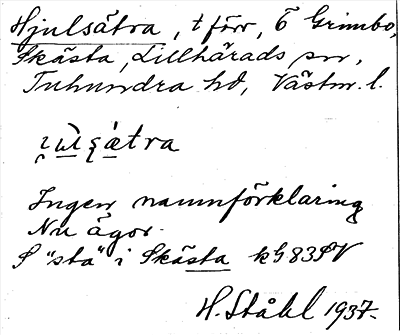 Hjulsätra, t förr, Ö Grimbo,
Skästa, Lillhärads sn,
Tuhundra hd, Västm. l.
sätra
Ingen namnförklaring
Nu ägor.
S "sta" i Skästa kG83SV
H. Ståhl 1937.